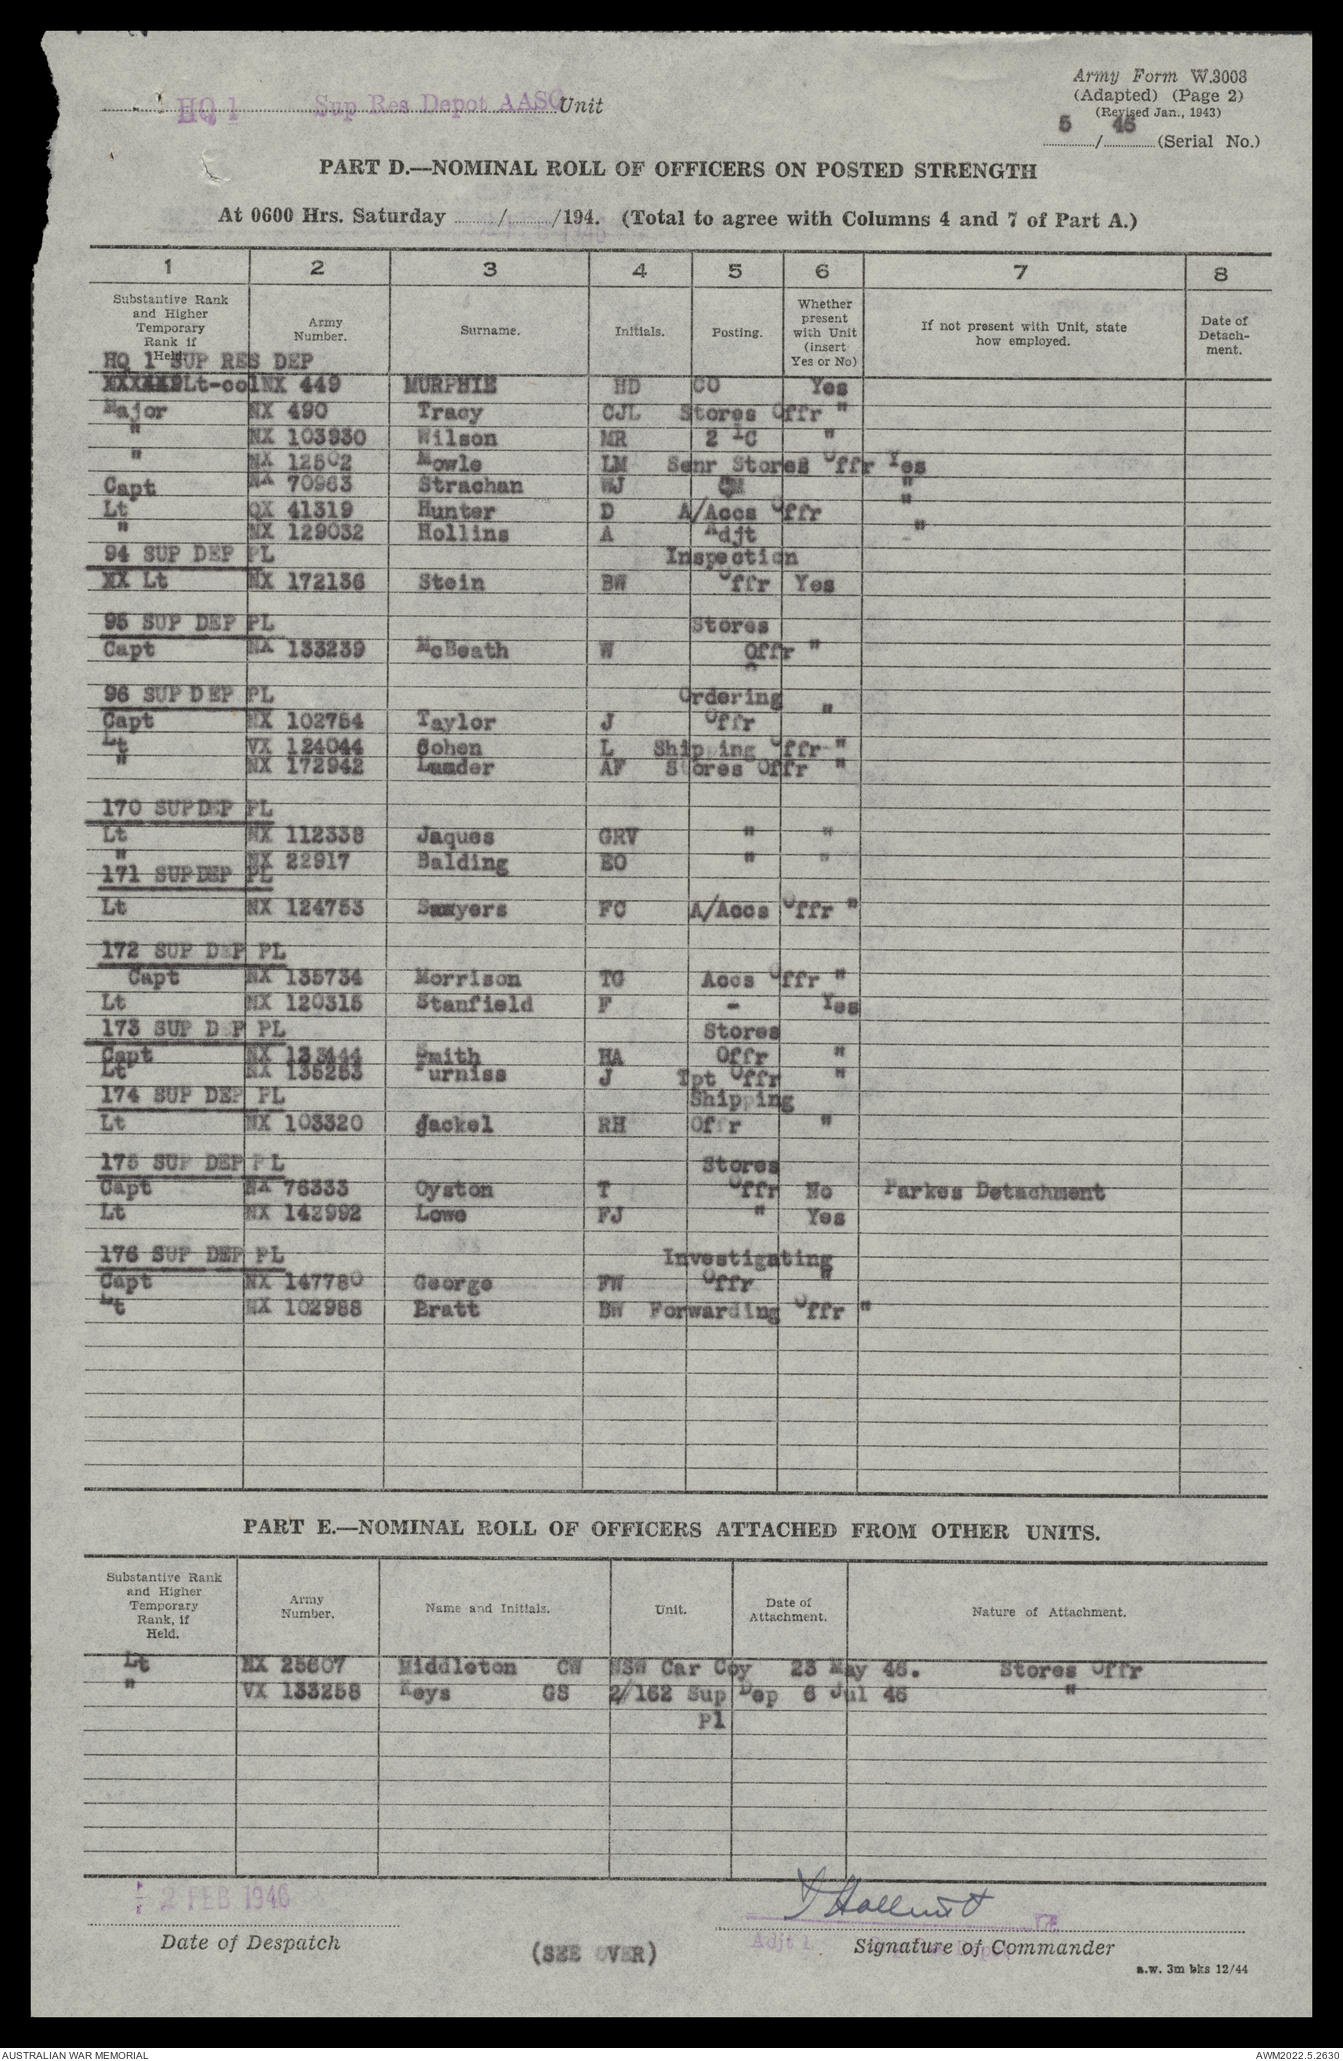 HQ 1 Sup Res Depot AASC Unit
Army Form W.3008
(Adapted) (Page 2)
(Revised Jan., 1943)
5 / 46 (Serial No.)
PART D.—NOMINAL ROLL OF OFFICERS ON POSTED STRENGTH
At 0600 Hrs. Saturday ......../......../194. (Total to agree with Columns 4 and 7 of Part A.)
1 2 3 4 5 6 7 8
Substantive Rank and Higher Temporary Rank if Held. Army Number. Surname. Initials. Posting. Whether present with Unit (insert Yes or No) If not present with Unit, state how employed. Date of Detachment.
HQ 1 SUP RES DEP
Lt-col NX 449 MURPHIE HD CO Yes
Major NX 490 Tracy CJL Stores Offr "
" NX 103930 Wilson MR 2 IC "
" NX 12502 Mowle LM Senr Stores Offr Yes
Capt NX 70963 Strachan WJ QM "
Lt QX 41319 Hunter D A/Accs Offr "
" NX 129032 Hollins A Adjt "
94 SUP DEP PL Inspection
XX Lt NX 172136 Stein BW Offr Yes
95 SUP DEP PL Stores
Capt NX 133239 McBeath W Offr "
96 SUP DEP PL Ordering
Capt NX 102754 Taylor J Offr "
Lt VX 124044 Cohen L Shipping Offr "
" NX 172942 Lumder AF Stores Offr "
170 SUP DEP PL
Lt NX 112338 Jaques GRV " "
" NX 22917 Balding EO " "
171 SUP DEP PL
Lt NX 124753 Sawyers FC A/Accs Offr "
172 SUP DEP PL
Capt NX 135734 Morrison TG Accs Offr "
Lt NX 120315 Stanfield F - Yes
173 SUP DEP PL Stores
Capt NX 133444 Smith HA Offr "
Lt NX 135253 Furniss J Tpt Offr "
174 SUP DEP PL Shipping
Lt NX 103320 Jackel RH Offr "
175 SUP DEP PL Stores
Capt NX 76333 Oyston T Offr No Parkes Detachment
Lt NX 142992 Lowe FJ " Yes
176 SUP DEP PL Investigating
Capt NX 147780 George FW Offr "
Lt NX 102988 Bratt BW Forwarding Offr "
PART E.—NOMINAL ROLL OF OFFICERS ATTACHED FROM OTHER UNITS.
Substantive Rank and Higher Temporary Rank, if Held. Army Number. Name and Initials. Unit. Date of Attachment. Nature of Attachment.
Lt NX 25607 Middleton CW NSW Car Coy 23 May 45. Stores Offr
" VX 133258 Keys GS 2/162 Sup Dep 6 Jul 45 "
Pl
2 FEB 1946
Date of Despatch
(SEE OVER)
Adjt 1
Signature of Commander
a.w. 3m bks 12/44
AUSTRALIAN WAR MEMORIAL
AWM2022.5.2630